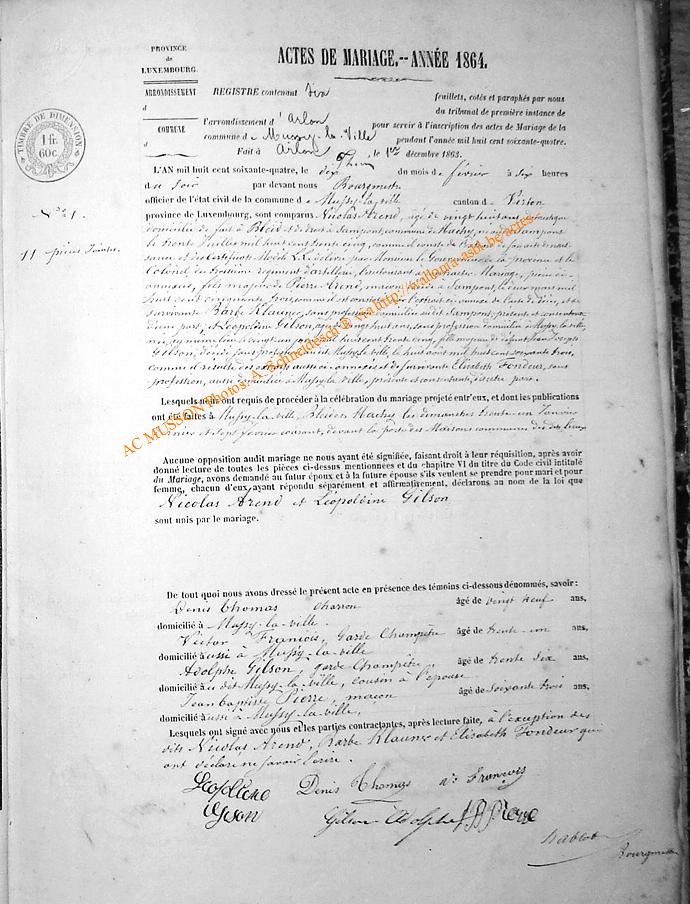 PROVINCE
de
LUXEMBOURG.
ARRONDISSEMENT
d
COMMUNE
d
ACTES DE MARIAGE.--ANNÉE 1864.
TIMBRE DE DIMENSION
1 fr.
60c.
REGISTRE contenant dix feuillets, cotés et paraphés par nous
du tribunal de première instance de
l'arrondissement d'Arlon pour servir à l'inscription des actes de Mariage de la
commune de Mussy-la-Ville pendant l'année mil huit cent soixante-quatre.
Fait à Arlon, le 1er décembre 1863.
N° 1.
11 pièces jointes.
L'AN mil huit cent soixante-quatre, le dix du mois de février à six heures
du soir par devant nous Bourgmestre
officier de l'état civil de la commune de Mussy-la-ville canton de Virton
province de Luxembourg, sont comparus Nicolas Arend, âgé de vingt huit ans,
domicilié de fait à Bleid et de droit à Sampont, commune de Hachy, né à Sampont
le trente Juillet mil huit cent trente cinq, comme il conste de
et du certificat délivré par Monsieur le Gouverneur de la province et le
Colonel du troisième régiment d'artillerie, l'autorisant à contracter Mariage,
fils majeur de Pierre Arend, maçon, décédé à Sampont, le deux mars mil
huit cent cinquante trois, comme il est constaté l'extrait de l'acte de décès, et de
survivante Barbe Klauner, sans profession, domiciliée au dit Sampont, présente et consentante
d'une part; et Léopoldine Gilson, âgée de vingt huit ans, sans profession, domiciliée à Mussy-la-ville,
née le vingt un mil huit cent trente cinq, fille majeure de défunt Jean Joseph
Gilson, décédé sans profession au dit Mussy-la-ville, le huit avril mil huit cent soixante trois,
comme il résulte des extraits aussi annexés et de survivante Elisabeth Fondeur, sans
profession, aussi domiciliée à Mussy-la-Ville, présente et consentante, d'autre part.
Lesquels nous ont requis de procéder à la célébration du mariage projeté entr'eux, et dont les publications
ont été faites à Mussy-la-ville, Bleid et Hachy les dimanches trente un Janvier
dernier et sept février courant, devant la porte des Maisons communes des dits lieux
Aucune opposition audit mariage ne nous ayant été signifiée, faisant droit à leur réquisition, après avoir
donné lecture de toutes les pièces ci-dessus mentionnées et du chapitre VI du titre du Code civil intitulé
du Mariage, avons demandé au futur époux et à la future épouse s'ils veulent se prendre pour mari et pour
femme, chacun d'eux ayant répondu séparément et affirmativement, déclarons au nom de la loi que
Nicolas Arend et Léopoldine Gilson
sont unis par le mariage.
De tout quoi nous avons dressé le présent acte en présence des témoins ci-dessous dénommés, savoir:
Denis Thomas charron âgé de vingt neuf ans,
domicilié à Mussy-la-ville.
Victor François, Garde Champêtre âgé de trente-un ans,
domicilié aussi à Mussy-la-ville
Adolphe Gilson, garde Champêtre, âgé de trente six ans,
domicilié au dit Mussy-la-ville, cousin à l'épouse
Jean Baptiste Pierre, maçon âgé de soixante trois ans,
domicilié aussi à Mussy-la-ville,
Lesquels ont signé avec nous et les parties contractantes, après lecture faite, à l'exception des
dits Nicolas Arend, Barbe Klauner et Elisabeth Fondeur qui
ont déclaré ne savoir écrire.
Léopoldine
Gilson
Denis Thomas
Vr François
Gilson Adolphe
JB Pierre
Bourgmestre
AC MUSSON Photos: A. Schneidesch © via http://wallonia-asbl.be/actes-